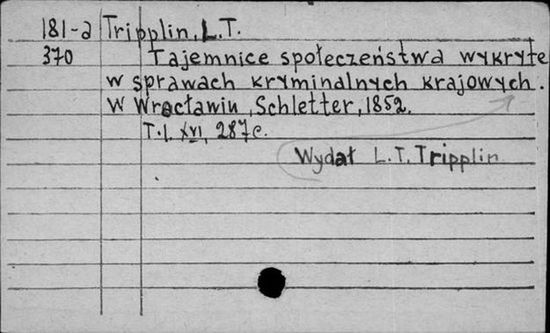 181-a Tripplin, L.T.
370 Tajemnice społeczeństwa wykryte
w sprawach kryminalnych krajowych.
W Wrocławiu, Schletter, 1852.
T.1. XVI, 287 c.
Wydał L.T. Tripplin